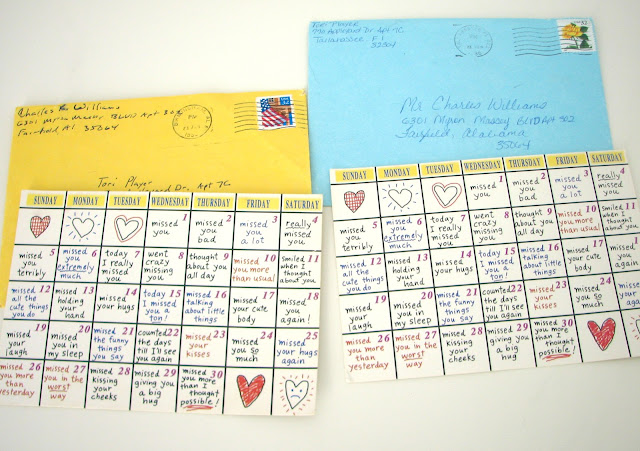 Charles B Williams
6301 Myron Massey BLVD Apt 302
Fairfield, Al 35064
Tori Player
Dr, Apt 7C
Tori Player
Appleyard Dr Apt 7C
Tallahassee Fl
32304
32
Mr Charles Williams
6301 Myron Massey BLVD Apt 302
Fairfield, Alabama
35064
SUNDAY MONDAY TUESDAY WEDNESDAY THURSDAY FRIDAY SATURDAY
1
missed
you
2
missed
you
bad
3
missed
you
a lot
4
really
missed
you
5
missed
you
terribly
6
missed
you
extremely
much
7
today
I really
missed
you
8
went
crazy
missing
you
9
thought
about you
all day
10
missed
you more
than usual
11
smiled
when I
thought
about you
12
missed
all the
cute things
you do
13
missed
holding
your
hand
14
missed
your hugs
15
today
I missed
you a
ton!
16
missed
talking
about little
things
17
missed
your cute
body
18
missed
you
again!
19
missed
your
laugh
20
missed
you in
my sleep
21
missed
the funny
things
you say
22
counted
the days
till I'll see
you again
23
missed
your
kisses
24
missed
you so
much
25
missed
your hugs
again
26
missed
you more
than
yesterday
27
missed
you in the
worst
way
28
missed
kissing
your
cheeks
29
missed
giving you
a big
hug
30
missed
you more
than I
thought
possible!
SUNDAY MONDAY TUESDAY WEDNESDAY THURSDAY FRIDAY SATURDAY
1
missed
you
2
missed
you
bad
3
missed
you
a lot
4
really
missed
you
5
missed
you
terribly
6
missed
you
extremely
much
7
today
I really
missed
you
8
went
crazy
missing
you
9
thought
about you
all day
10
missed
you more
than usual
11
smiled
when I
thought
about you
12
missed
all the
cute things
you do
13
missed
holding
your
hand
14
missed
your hugs
15
today
I missed
you a
ton!
16
missed
talking
about little
things
17
missed
your cute
body
19
missed
your
laugh
20
missed
you in
my sleep
21
missed
the funny
things
you say
22
counted
the days
till I'll see
you again
23
missed
your
kisses
24
missed
you so
much
26
missed
you more
than
yesterday
27
missed
you in the
worst
way
28
missed
kissing
your
cheeks
29
missed
giving you
a big
hug
30
missed
you more
than I
thought
possible!